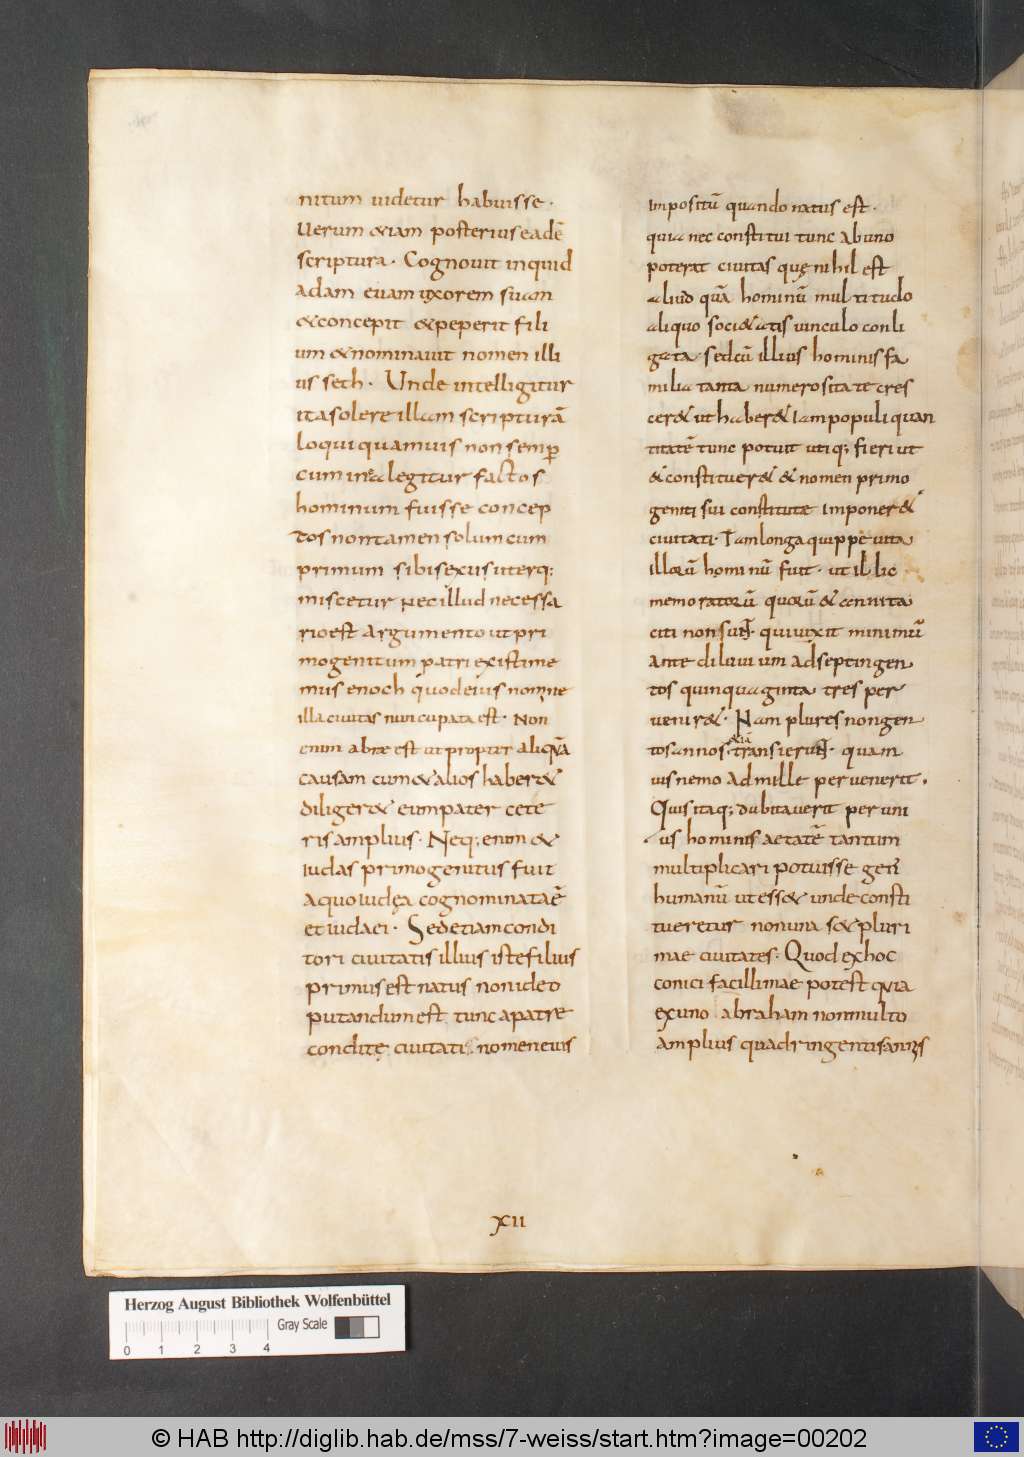 nitum uidetur habuisse ·
Uerum &iam posterius eadē
scriptura · Cognouit inquid
adam euam uxorem suam
&concepit &peperit fili
um &nominauit nomen illi
us seth · Unde intelligitur
ita solere illam scripturā
loqui quamuis non semper
cum in ea legitur factos
hominum fuisse concep
tos non tamen solum cum
primum sibi sexus uterq;
miscetur Nec illud necessa
rio est argumento ut pri
mogenitum patri existime
mus enoch quod eius nomine
illa ciuitas nuncupata est · Non
enim ab re est ut propter aliquā
causam cum &alios haber&
diliger& eum pater cete
ris amplius · Neq; enim &
iudas primogenitus fuit
a quo iudęa cognominata ē
et iudaei · Sed etiam condi
tori ciuitatis illius iste filius
primus est natus non ideo
putandum est tunc a patre
conditę ciuitati nomen eius
impositū quando natus est ·
quia nec constitui tunc ab uno
poterat ciuitas quę nihil est
aliud quā hominū multitudo
aliquo soci&atis uinculo conli
gata · sed cū illius hominis fa
milia tanta numerositate cres
cer& ut haber& iam populi quan
titatē tunc potuit utiq; fieri ut
& constituer& & nomen primo
geniti sui constitutae imponer&
ciuitati · Tam longa quippe uita
illorū hominū fuit · ut illic
memoratorū quorū & anni ta
citi non sunt · qui uixit minimū
ante diluuium ad septingen
tos quinquaginta tres per
uenir& · Nam plures nongen
tos annos · &iā transierunt · quam
uis nemo ad mille peruenerit ·
Quis itaq; dubitauerit per uni
us hominis aetatē tantum
multiplicari potuisse gen'
humanū ut ess& unde consti
tueretur non una s& pluri
mae ciuitates · Quod ex hoc
conici facillimae potest quia
ex uno abraham non multo
amplius quadringentis annis
XII
Herzog August Bibliothek Wolfenbüttel
Gray Scale
0 1 2 3 4
© HAB http://diglib.hab.de/mss/7-weiss/start.htm?image=00202